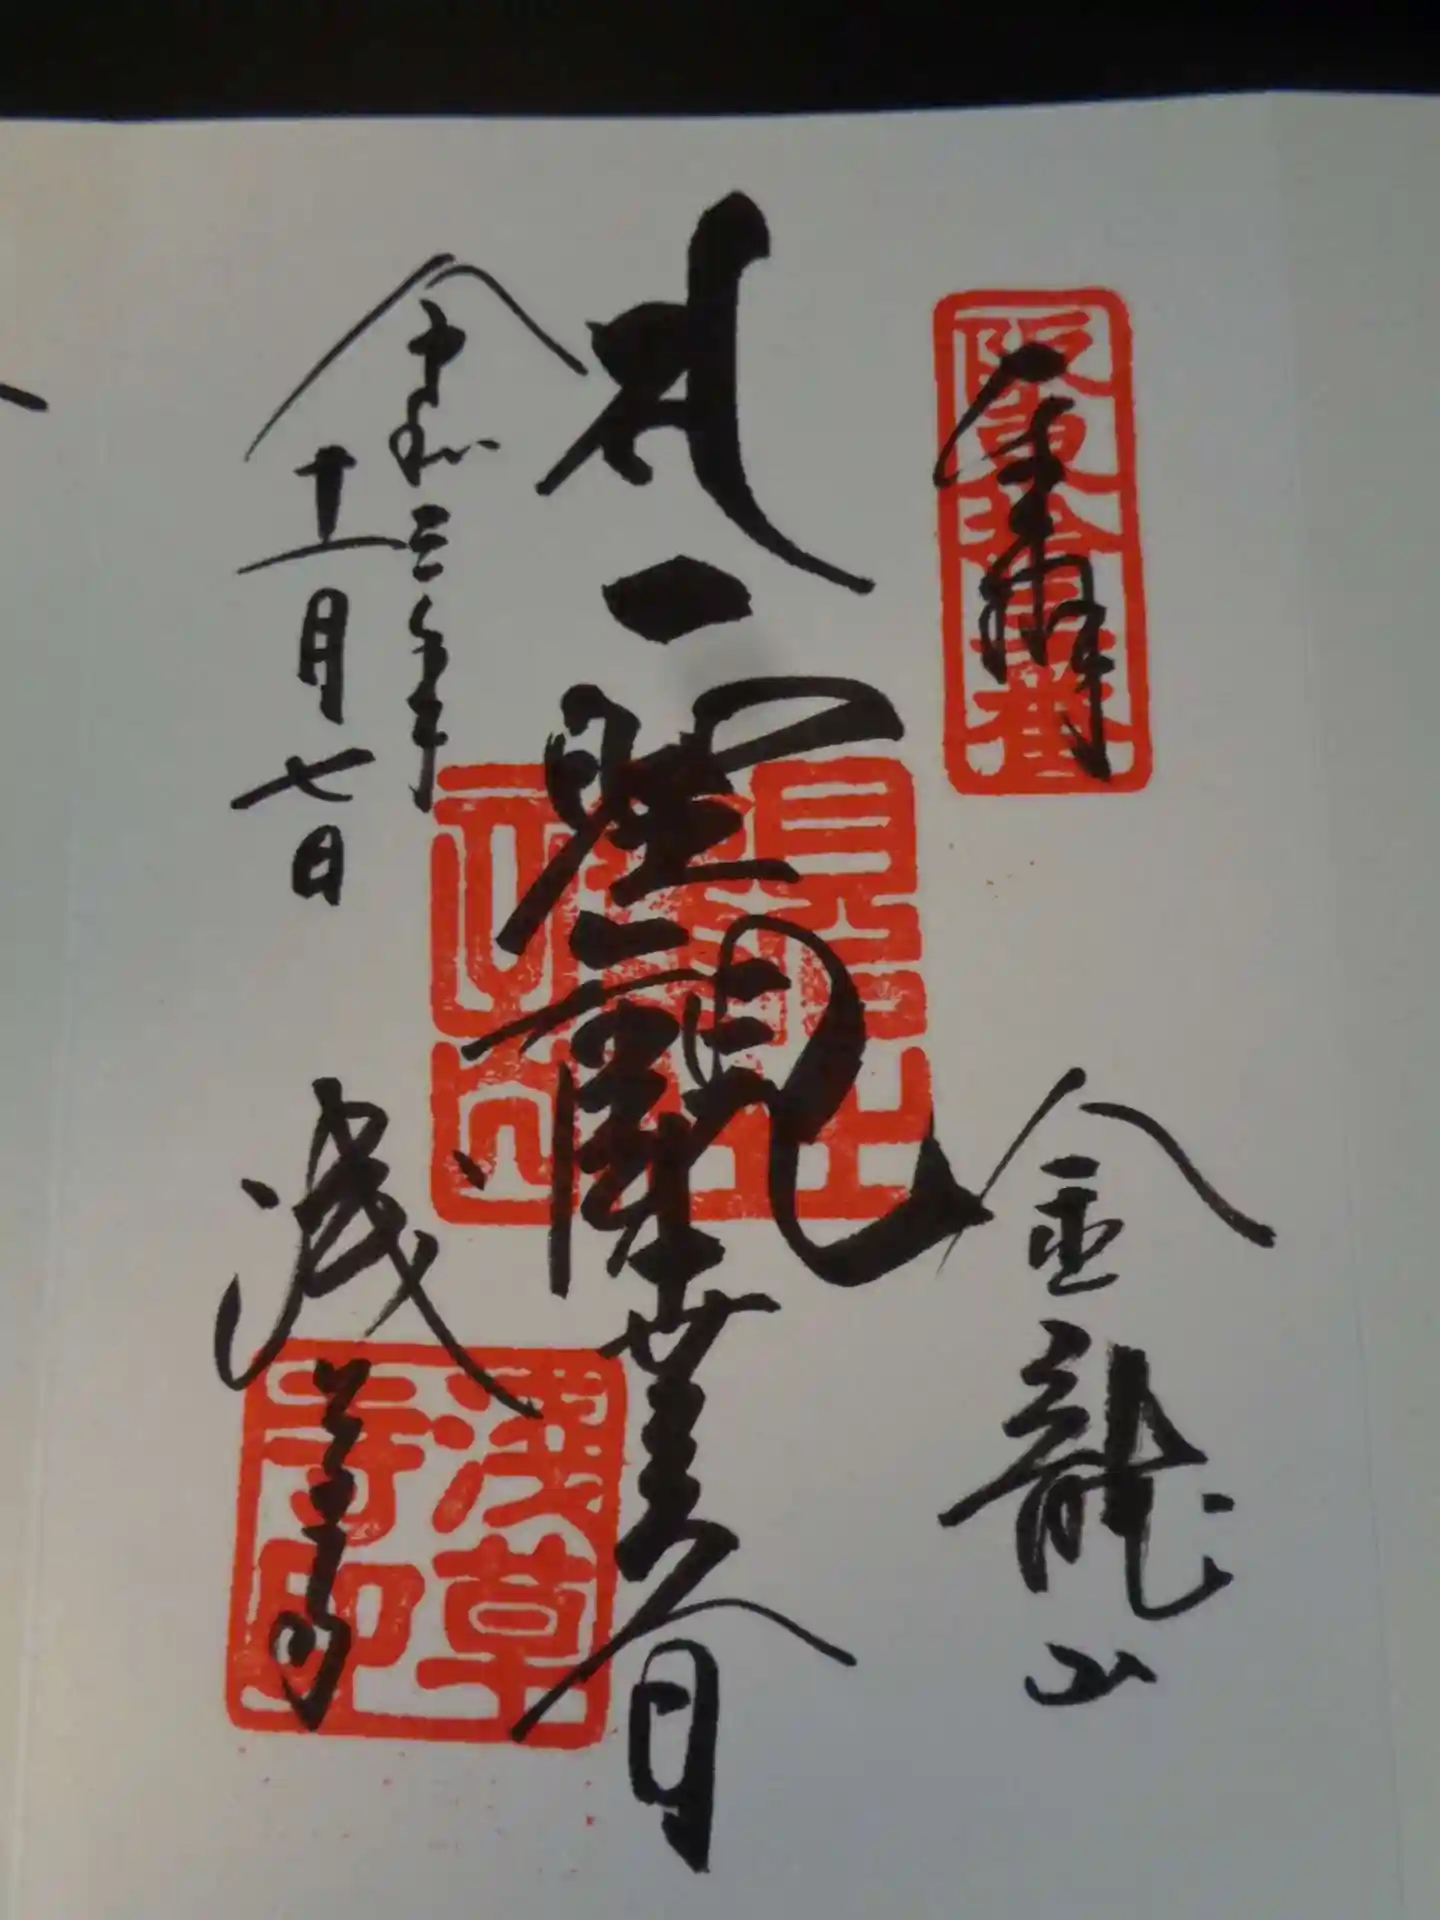 阪東拾三番
奉拝
金龍山
聖観世音
令和三年
十一月七日
浅草寺
浅草寺印